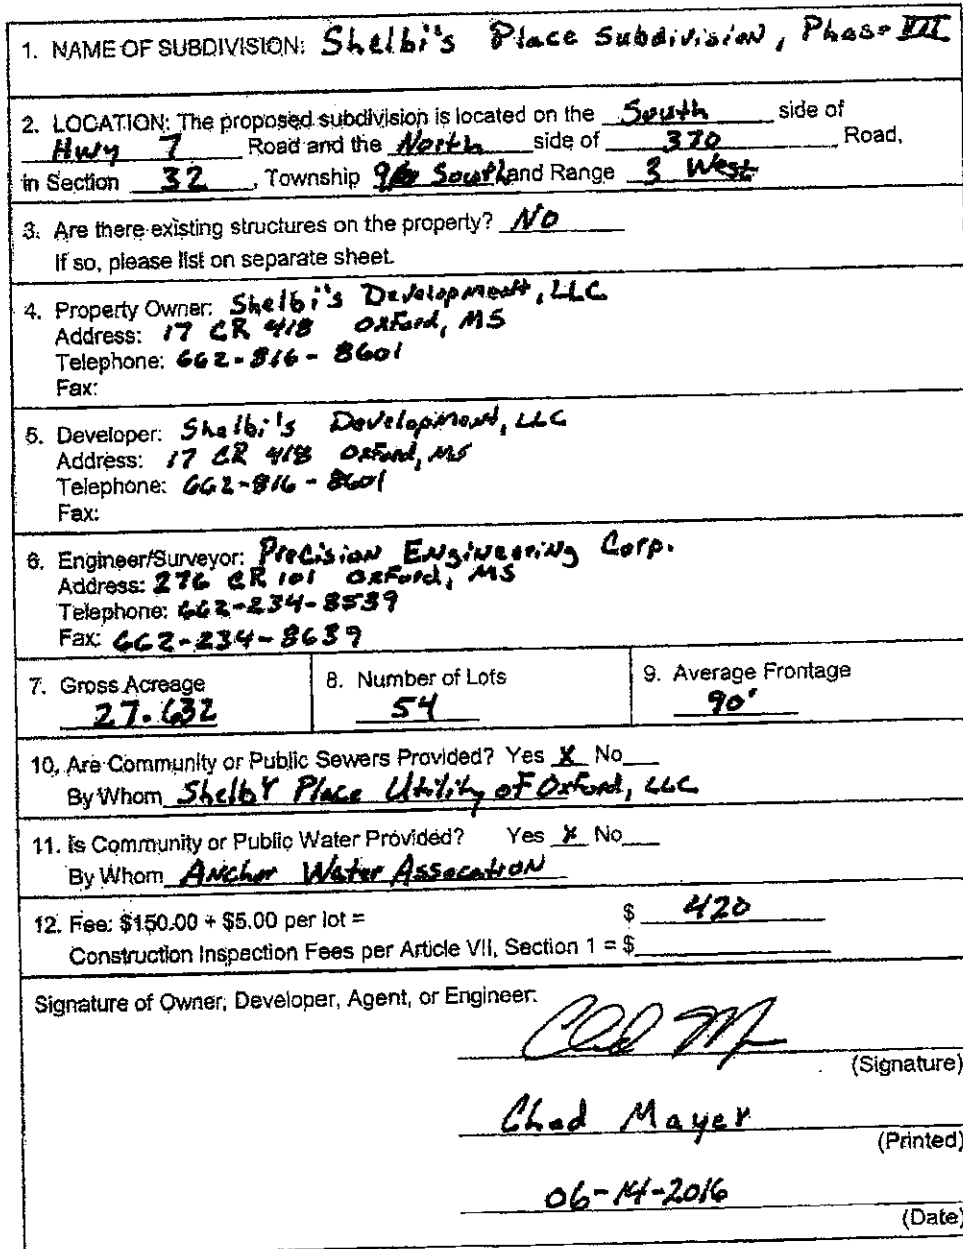 1. NAME OF SUBDIVISION: Shelbi's Place Subdivision, Phase VII
2. LOCATION: The proposed subdivision is located on the South side of
Hwy 7 Road and the North side of 370 Road,
in Section 32, Township South and Range 3 West
3. Are there existing structures on the property? No
If so, please list on separate sheet.
4. Property Owner: Shelbi's Development, LLC
Address: 17 CR 418 Oxford, MS
Telephone: 662-816-8601
Fax:
5. Developer: Shelbi's Development, LLC
Address: 17 CR 418 Oxford, MS
Telephone: 662-816-8601
Fax:
6. Engineer/Surveyor: Precision Engineering Corp.
Address: 276 CR 101 Oxford, MS
Telephone: 662-234-8539
Fax: 662-234-8639
7. Gross Acreage 8. Number of Lots 9. Average Frontage
27.632 54 90'
10. Are Community or Public Sewers Provided? Yes X No___
By Whom ShelbY Place Utility of Oxford, LLC
11. Is Community or Public Water Provided? Yes X No___
By Whom Anchor Water Assocation
12. Fee: $150.00 + $5.00 per lot = $ 420
Construction Inspection Fees per Article VII, Section 1 = $
Signature of Owner, Developer, Agent, or Engineer:
(Signature)
Chad Mayer
(Printed)
06-14-2016
(Date)